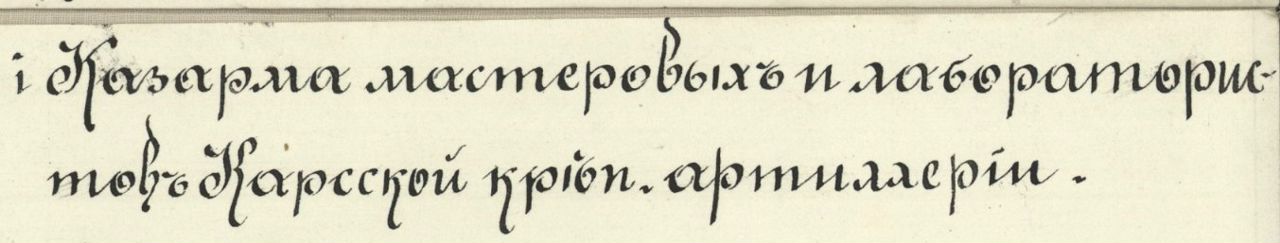 і Казарма мастеровыхъ и лабораторис-
товъ Карсской крѣп. артиллеріи.